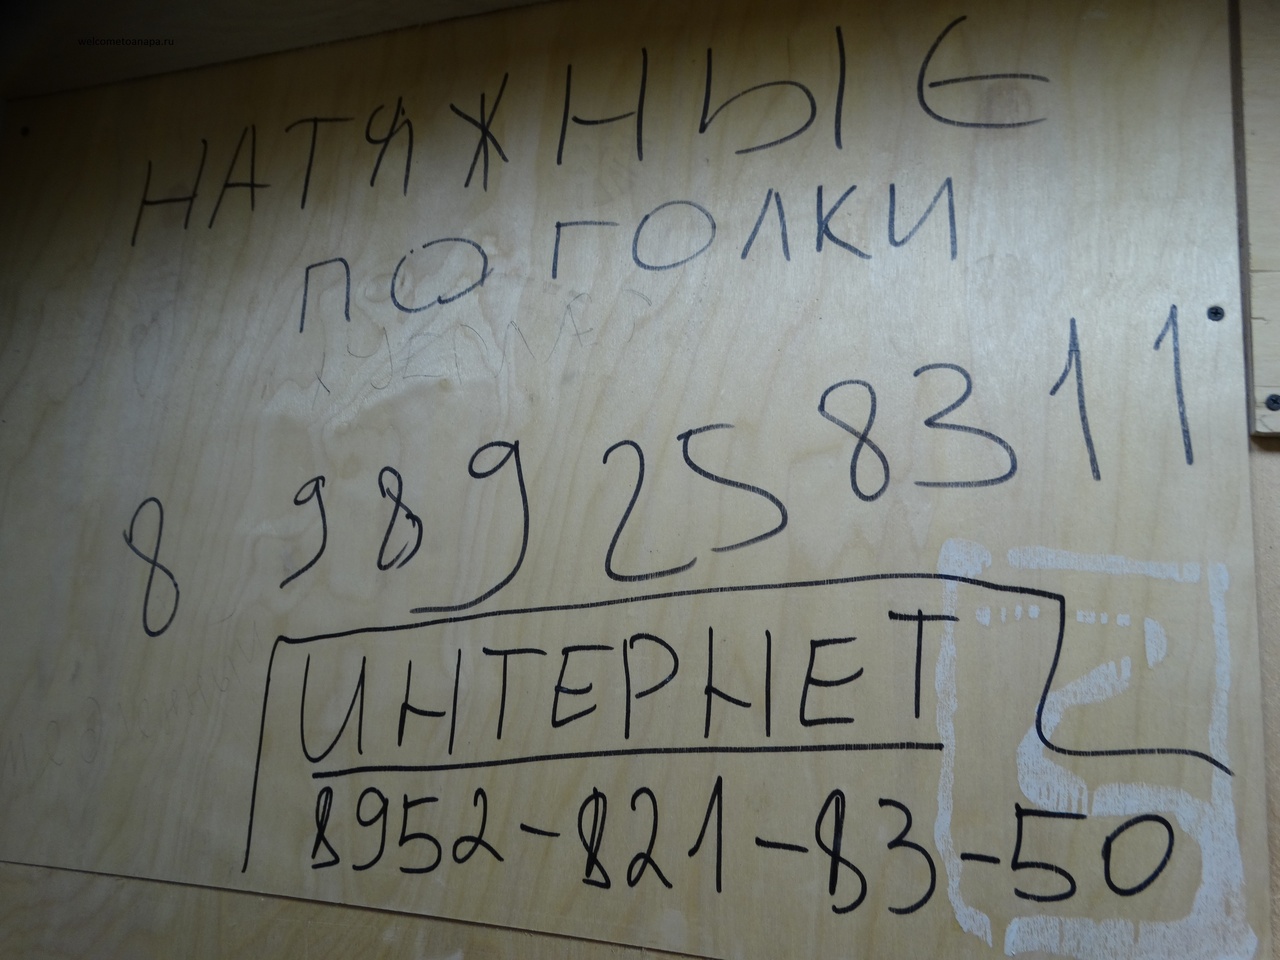 welcometoanapa.ru
НАТЯЖНЫЕ
ПОГОЛКИ
8 989 25 83 11
ИНТЕРНЕТ
8952-821-83-50